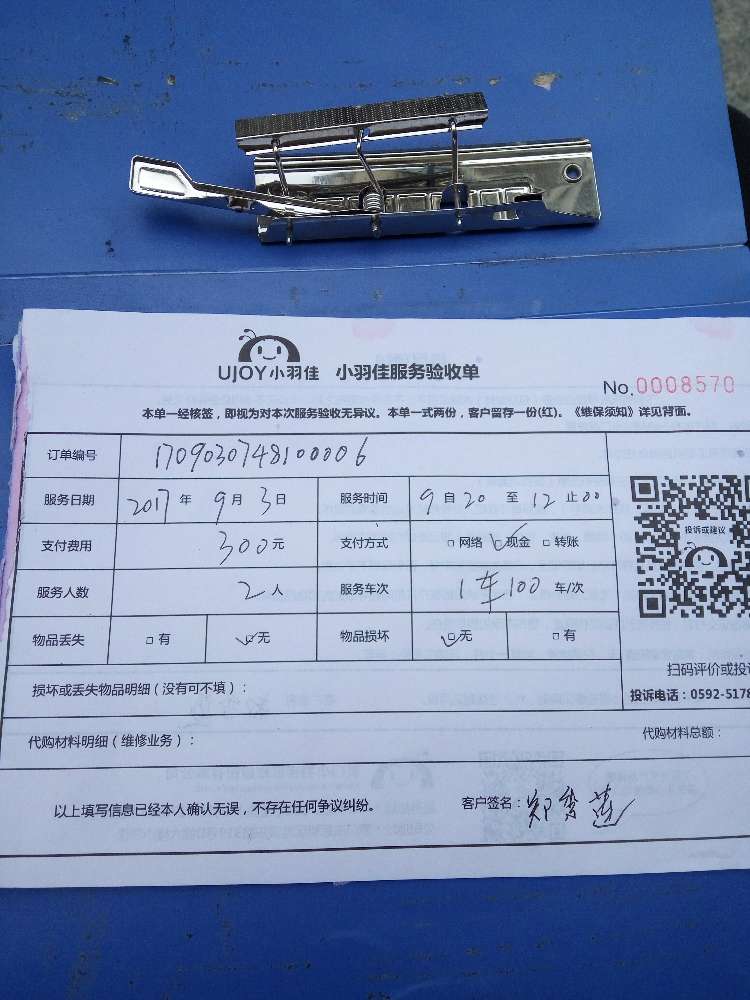 UJOY小羽佳 小羽佳服务验收单
No.0008570
本单一经核签，即视为对本次服务验收无异议。本单一式两份，客户留存一份(红)。《维保须知》详见背面。
订单编号 1709030748100006
服务日期 2017年9月3日 服务时间 9自20至12止00
投诉或建议
支付费用 300元 支付方式 □网络 □现金 □转账
服务人数 2人 服务车次 1车100 车/次
物品丢失 □有 □无 物品损坏 □无 □有
扫码评价或投
损坏或丢失物品明细（没有可不填）：
投诉电话：0592-5178
代购材料明细（维修业务）： 代购材料总额：
以上填写信息已经本人确认无误，不存在任何争议纠纷。 客户签名：郑秀莲